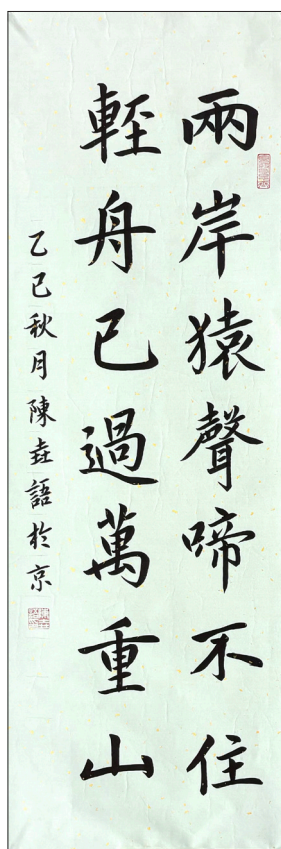 兩岸猿聲啼不住
輕舟已過萬重山
乙巳秋月陳垚語於京